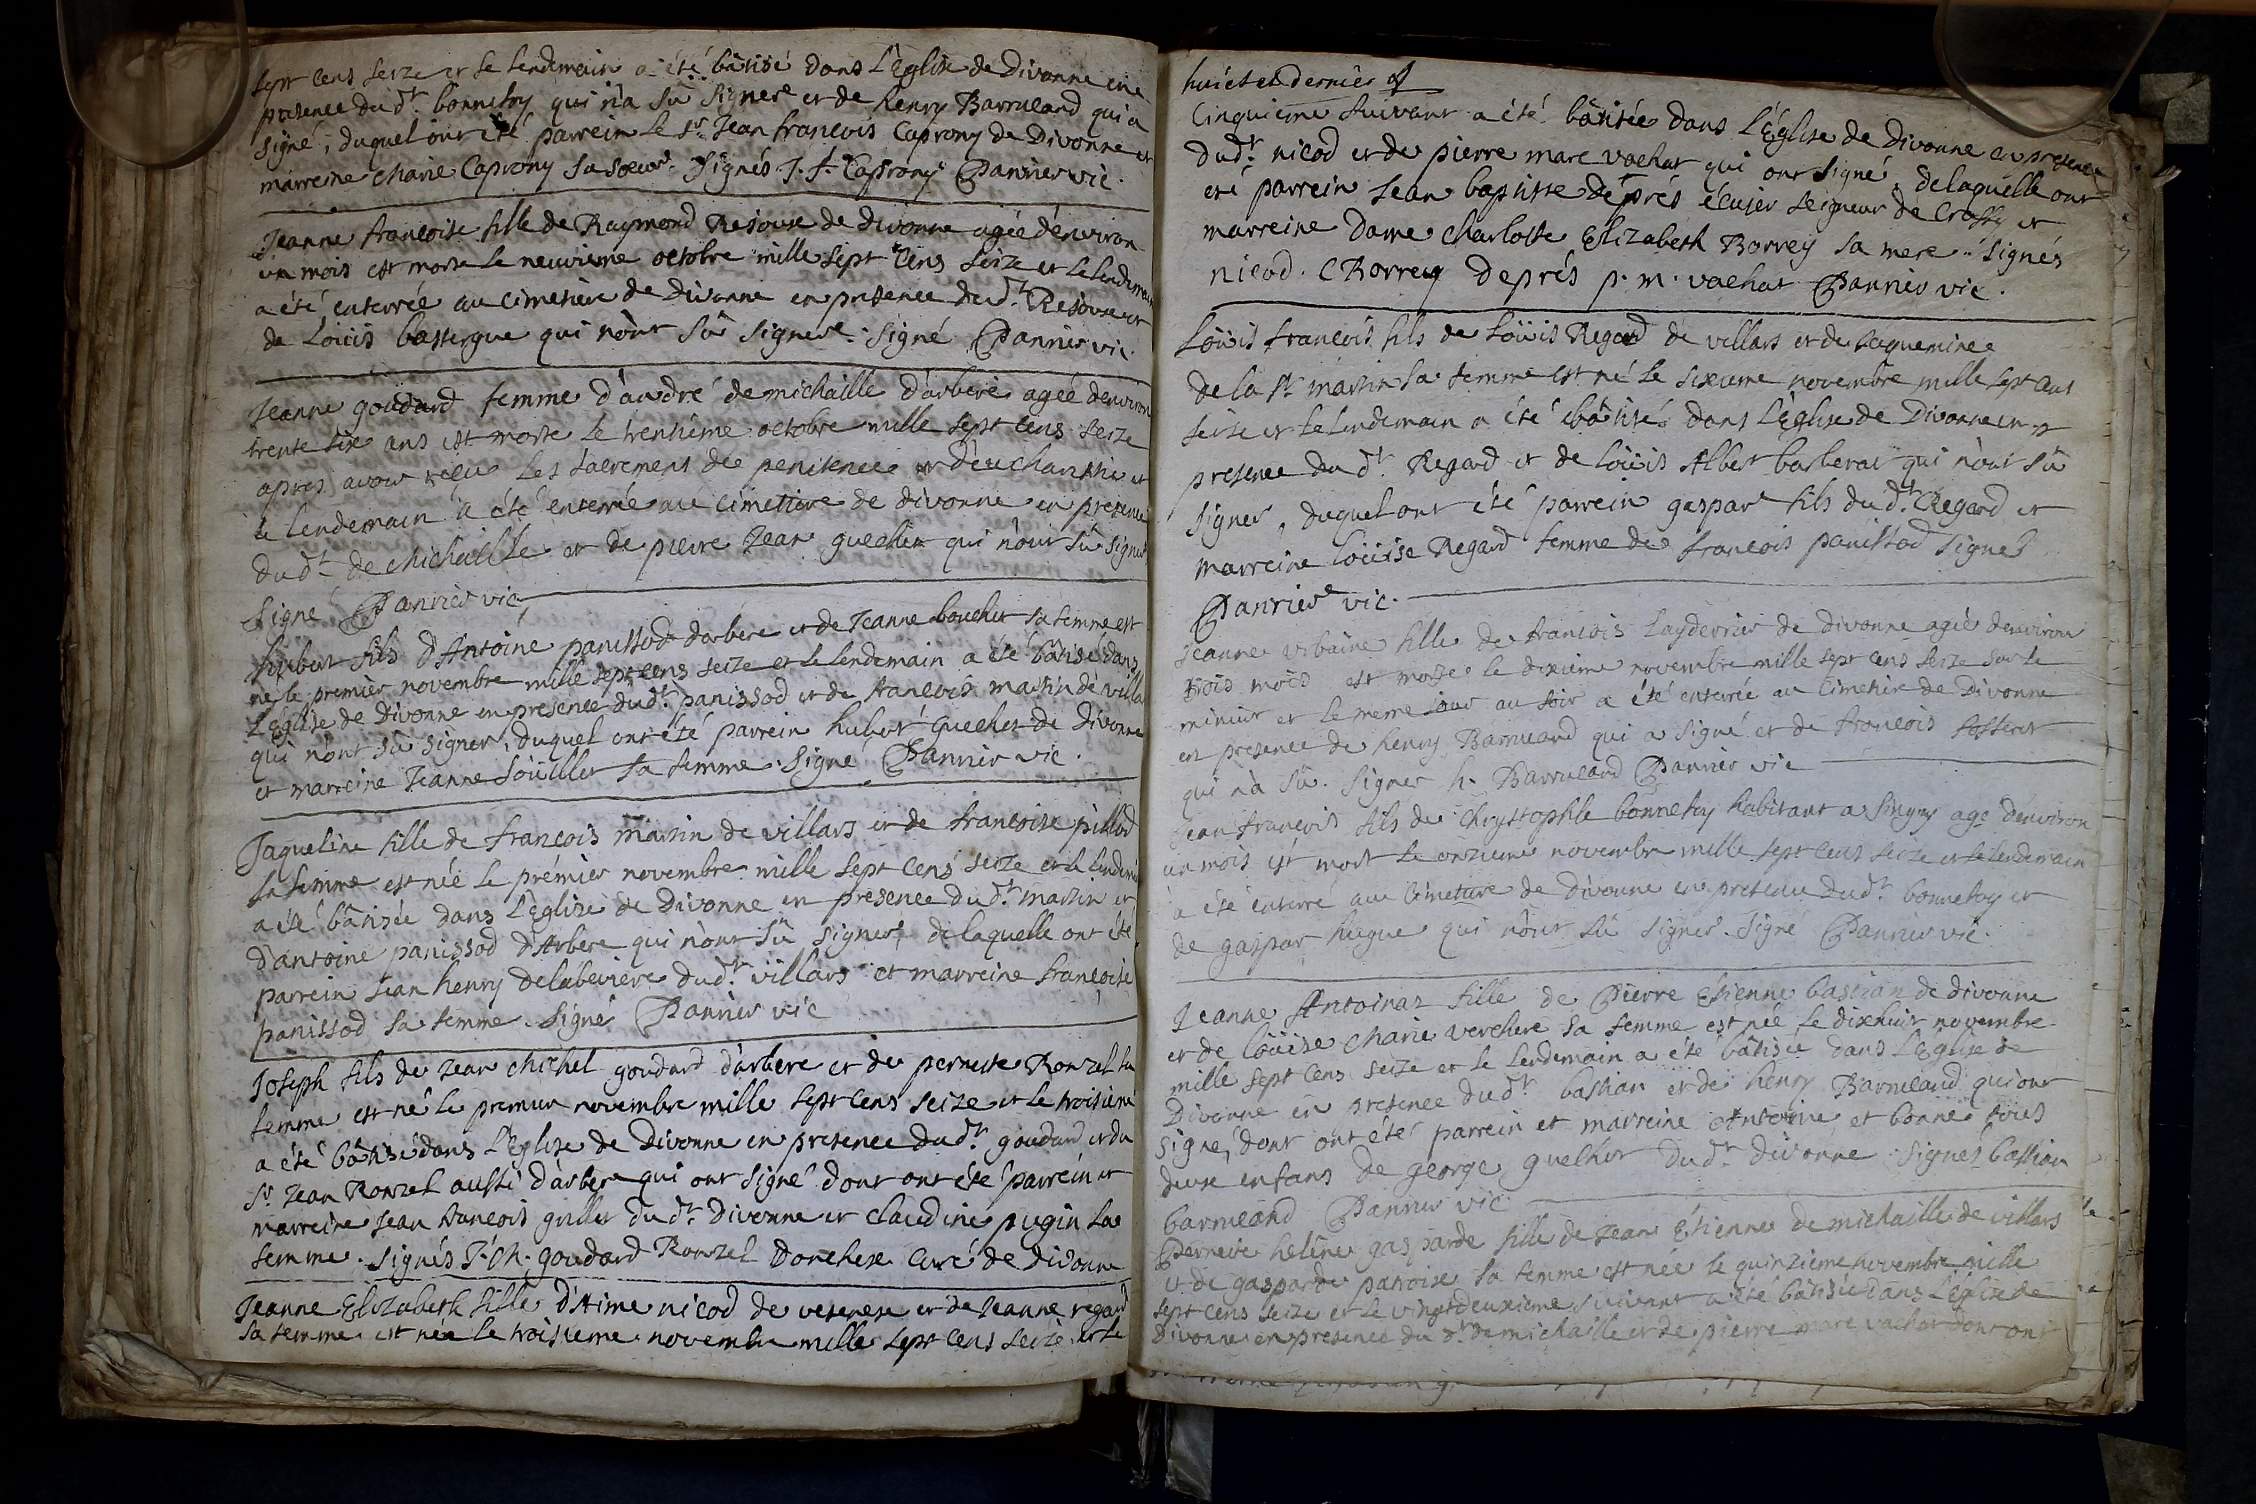 sept cens seize et le lendemain a été bâtisé dans l'Eglise de Divonne en
presence dud.t bonnefoy qui n'a sû signer et de henry Barrueand qui a
signé, duquel ont été parrein le s.r Jean francois Caprony de Divonne et
marreine Marie Caprony sa soeur. Signés J. f. Caprony Pannier vic.
Jeanne francoise fille de Raymond Resouse de divonne agée d'environ
un mois est morte le neuvieme octobre mille sept cens seize et le lendemain
a été enterrée au cimetiere de divonne en presence dud.t Resouse et
de Loüis bastergue qui n'ont sû signer. Signé Pannier vic.
Jeanne goudard femme d'andré de michaille d'arbere agée d'environ
trente six ans est morte le trentième octobre mille sept cens seize
apres avoir recu les sacremens de penitence et d'euchanstie et
le lendemain a été enterrée au cimetiere de divonne en presence
dud.t de Michaille et de pierre Jean guechet qui n'ont sû signer
Signé Pannier vic.
hubert fils d'Antoine panissod d'arbere et de Jeanne bouchet sa femme est
né le premier novembre mille sept cens seize et le lendemain a été bâtisé dans
l'Eglise de Divonne en presence dud.t panissod et de francois martin de villars
qui n'ont sû signer, duquel ont été parrein hubert Guechet de Divonne
et marreine Jeanne Soüillet sa femme. Signé Pannier vic.
Jaqueline fille de francois martin de villars et de francoise pillod
sa femme est née le prémier novembre mille sept cens seize et le lendemain
a été bâtizée dans l'Eglize de Divonne en presence dud.t martin et
d'antoine panissod d'Arbere qui n'ont sû signer, de laquelle ont été
parrein Jean henry delabeviere dud.t villars et marreine francoise
panissod sa femme. Signé Pannier vic
Joseph fils de Jean Michel goudard d'arbere et de pernette Ronzel sa
femme est né le premier novembre mille sept cens seize et le troisieme
a été bâtisé dans l'Eglize de Divonne en presence dud.t goudard et du
S.r Jean Ronzel aussi d'arbere qui ont signé dont ont été parrein et
marreine Jean francois grillet dud.t Divonne et Claudine pugin sa
femme. Signés J. Ch. goudard Ronzel Donchere curé de divonne
Jeanne Elizabeth fille d'Aime nicod de vesenese et de Jeanne regard
sa femme est née le troisieme novembre mille sept cens seize et le
huict et dernier
Cinquieme suivant a été bâtisée dans l'Église de Divonne en presence
dud.t nicod et de pierre marc vachat qui ont signé, de laquelle ont
eté parrein Jean baptiste déprés écuier seigneur de Crassy et
marreine Dame Charlotte Elizabeth Borrey sa mere. Signés
nicod. C Borrey deprés p. m. vachat Pannier vic.
Loüis francois fils de Loüis Regard de villars et de Jaquemine
de la S.t martin sa femme est né le sixieme novembre mille sept cens
seize et le lendemain a été bâtisé dans l'Eglise de Divonne en
presence dud.t Regard et de Loüis Albert barberat qui n'ont sû
signer, duquel ont été parrein gaspar fils dud.t Regard et
marreine Loüise Regard femme de francois panissod Signés
Pannier vic.
Jeanne urbaine fille de francois Layderrier de divonne agée d'environ
trois mois est morte le dixieme novembre mille sept cens seize sur le
minuit et le meme jour au soir a été enterrée au cimetiere de Divonne
en presence de henry Barrueand qui a signé et de francois fosseret
qui n'a sû. signer h. Barrueand Pannier vic
Jean francois fils de Chrystophle bonnefoy habitant a Gingins agé d'environ
un mois est mort le onzieme novembre mille sept cens seize et le lendemain
a été enterré au cimetiere de Divonne en presence dud.t bonnefoy et
de gaspar hugue qui n'ont sû signer. Signé Pannier vic.
Jeanne Antoinaz fille de Pierre Etienne bastian de divonne
et de Loüise Marie verchere sa femme est née le dixhuit novembre
mille sept cens seize et le lendemain a été bâtisée dans l'Eglise de
Divonne en presence dud.t bastian et de henry Barrueand qui ont
signé, dont ont été parrein et marreine Antoine et bonne tous
deux enfans de george guechet dud.t divonne. Signés bastian
barrueand Pannier vic.
Pernette heléne gasparde fille de Jean Etienne de michaille de villars
et de gasparde panoise sa femme est née le quinzieme novembre mille
sept cens seize et le vingtdeuxieme suivant a été bâtisée dans l'Église de
divonne en presence du d.t de michaille et de pierre marc vachat dont ont